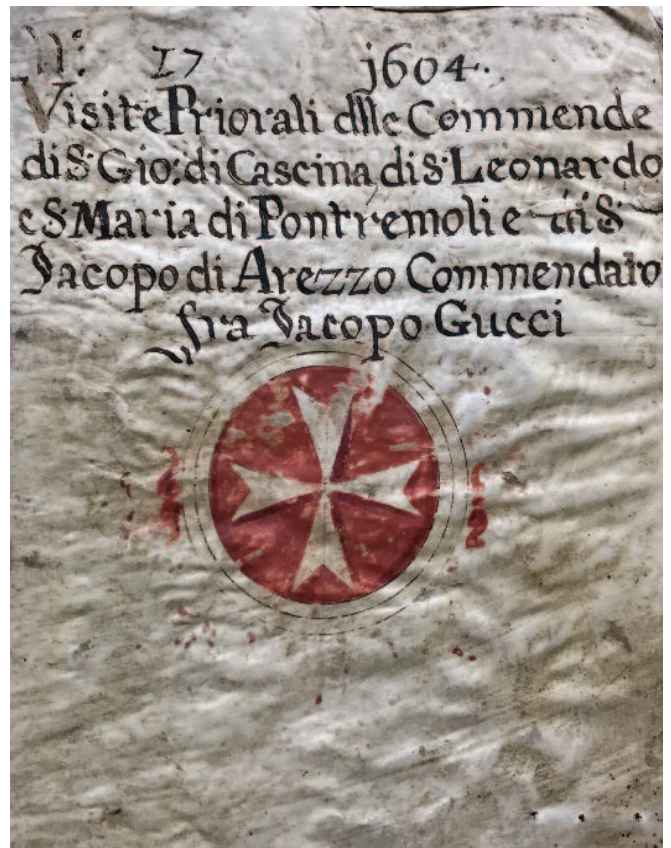 N: 17 1604.
Visite Priorali dlle Commende
di S. Gio: di Cascina di S. Leonardo
e S. Maria di Pontremoli e di S.
Jacopo di Arezzo Commendato
fra Jacopo Gucci